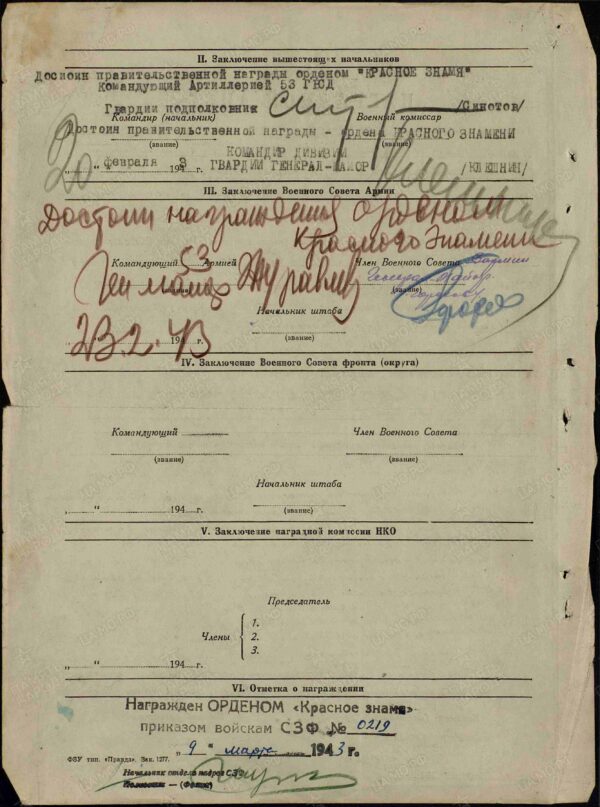 II. Заключение вышестоящих начальников
Досиоин правительственной награды орденом "КРАСНОЕ ЗНАМЯ"
Командующий Артиллерией 53 ГКСД
Гвардии подполковник /Синотов/
Командир (начальник) Военный комиссар
Достоин правительственной награды - ордена КРАСНОГО ЗНАМЕНИ
(звание) (звание)
КОМАНДИР ДИВИЗИИ
20 февраля 194 3 ГВАРДИИ ГЕНЕРАЛ-МАЙОР /КЛЕШНИН/
III. Заключение Военного Совета Армии
Достоин награждения орденом
Красного Знамени
Командующий 53 Армией Член Военного Совета 53 армии
Ген майор Журавлев генерал майор
(звание) (звание)
Начальник штаба
(звание)
23.2.43
„ “ 194 г.
IV. Заключение Военного Совета фронта (округа)
Командующий Член Военного Совета
(звание) (звание)
Начальник штаба
(звание)
„ “ 194 г.
V. Заключение наградной комиссии НКО
Председатель
Члены 1.
2.
3.
„ “ 194 г.
VI. Отметка о награждении
Награжден ОРДЕНОМ «Красное знамя»
приказом войскам СЗФ № 0219
„ 9 “ марта 1943 г.
ФБУ тип. «Правда». Зак. 1277.
Начальник отдела кадров СЗФ